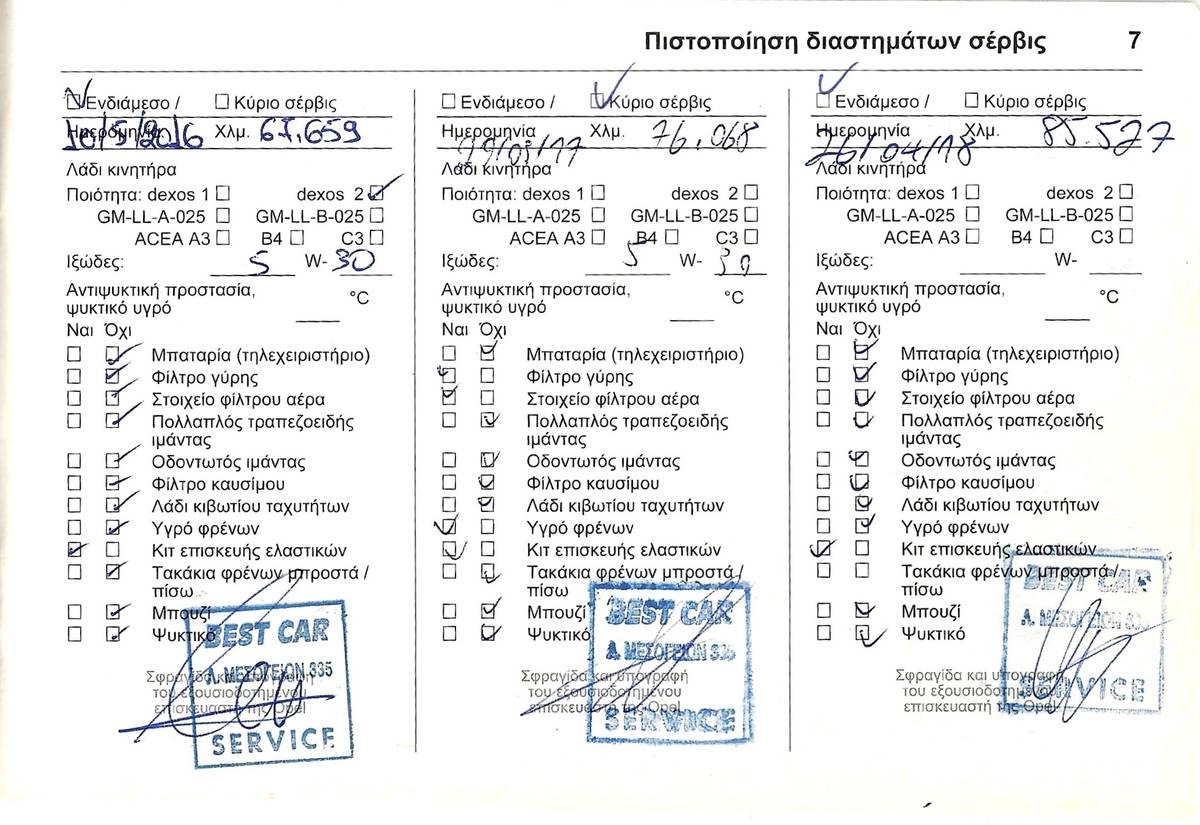 Πιστοποίηση διαστημάτων σέρβις 7
Ενδιάμεσο / Κύριο σέρβις
Ημερομηνία Χλμ.
10/5/2016 67.659
Λάδι κινητήρα
Ποιότητα: dexos 1 dexos 2
GM-LL-A-025 GM-LL-B-025
ACEA A3 B4 C3
Ιξώδες: 5 W- 30
Αντιψυκτική προστασία,
ψυκτικό υγρό °C
Ναι Όχι
Μπαταρία (τηλεχειριστήριο)
Φίλτρο γύρης
Στοιχείο φίλτρου αέρα
Πολλαπλός τραπεζοειδής
ιμάντας
Οδοντωτός ιμάντας
Φίλτρο καυσίμου
Λάδι κιβωτίου ταχυτήτων
Υγρό φρένων
Κιτ επισκευής ελαστικών
Τακάκια φρένων μπροστά /
πίσω
Μπουζί
Ψυκτικό
BEST CAR
Λ. ΜΕΣΟΓΕΙΩΝ 335
SERVICE
Σφραγίδα και υπογραφή
του εξουσιοδοτημένου
επισκευαστή της Opel
Ενδιάμεσο / Κύριο σέρβις
Ημερομηνία Χλμ.
76.068
Λάδι κινητήρα
Ποιότητα: dexos 1 dexos 2
GM-LL-A-025 GM-LL-B-025
ACEA A3 B4 C3
Ιξώδες: 5 W- 30
Αντιψυκτική προστασία,
ψυκτικό υγρό °C
Ναι Όχι
Μπαταρία (τηλεχειριστήριο)
Φίλτρο γύρης
Στοιχείο φίλτρου αέρα
Πολλαπλός τραπεζοειδής
ιμάντας
Οδοντωτός ιμάντας
Φίλτρο καυσίμου
Λάδι κιβωτίου ταχυτήτων
Υγρό φρένων
Κιτ επισκευής ελαστικών
Τακάκια φρένων μπροστά /
πίσω
Μπουζί
Ψυκτικό
BEST CAR
Λ. ΜΕΣΟΓΕΙΩΝ 335
SERVICE
Σφραγίδα και υπογραφή
του εξουσιοδοτημένου
επισκευαστή της Opel
Ενδιάμεσο / Κύριο σέρβις
Ημερομηνία Χλμ.
26/04/18 85.527
Λάδι κινητήρα
Ποιότητα: dexos 1 dexos 2
GM-LL-A-025 GM-LL-B-025
ACEA A3 B4 C3
Ιξώδες: W-
Αντιψυκτική προστασία,
ψυκτικό υγρό °C
Ναι Όχι
Μπαταρία (τηλεχειριστήριο)
Φίλτρο γύρης
Στοιχείο φίλτρου αέρα
Πολλαπλός τραπεζοειδής
ιμάντας
Οδοντωτός ιμάντας
Φίλτρο καυσίμου
Λάδι κιβωτίου ταχυτήτων
Υγρό φρένων
Κιτ επισκευής ελαστικών
Τακάκια φρένων μπροστά /
πίσω
Μπουζί
Ψυκτικό
BEST CAR
Λ. ΜΕΣΟΓΕΙΩΝ 335
SERVICE
Σφραγίδα και υπογραφή
του εξουσιοδοτημένου
επισκευαστή της Opel